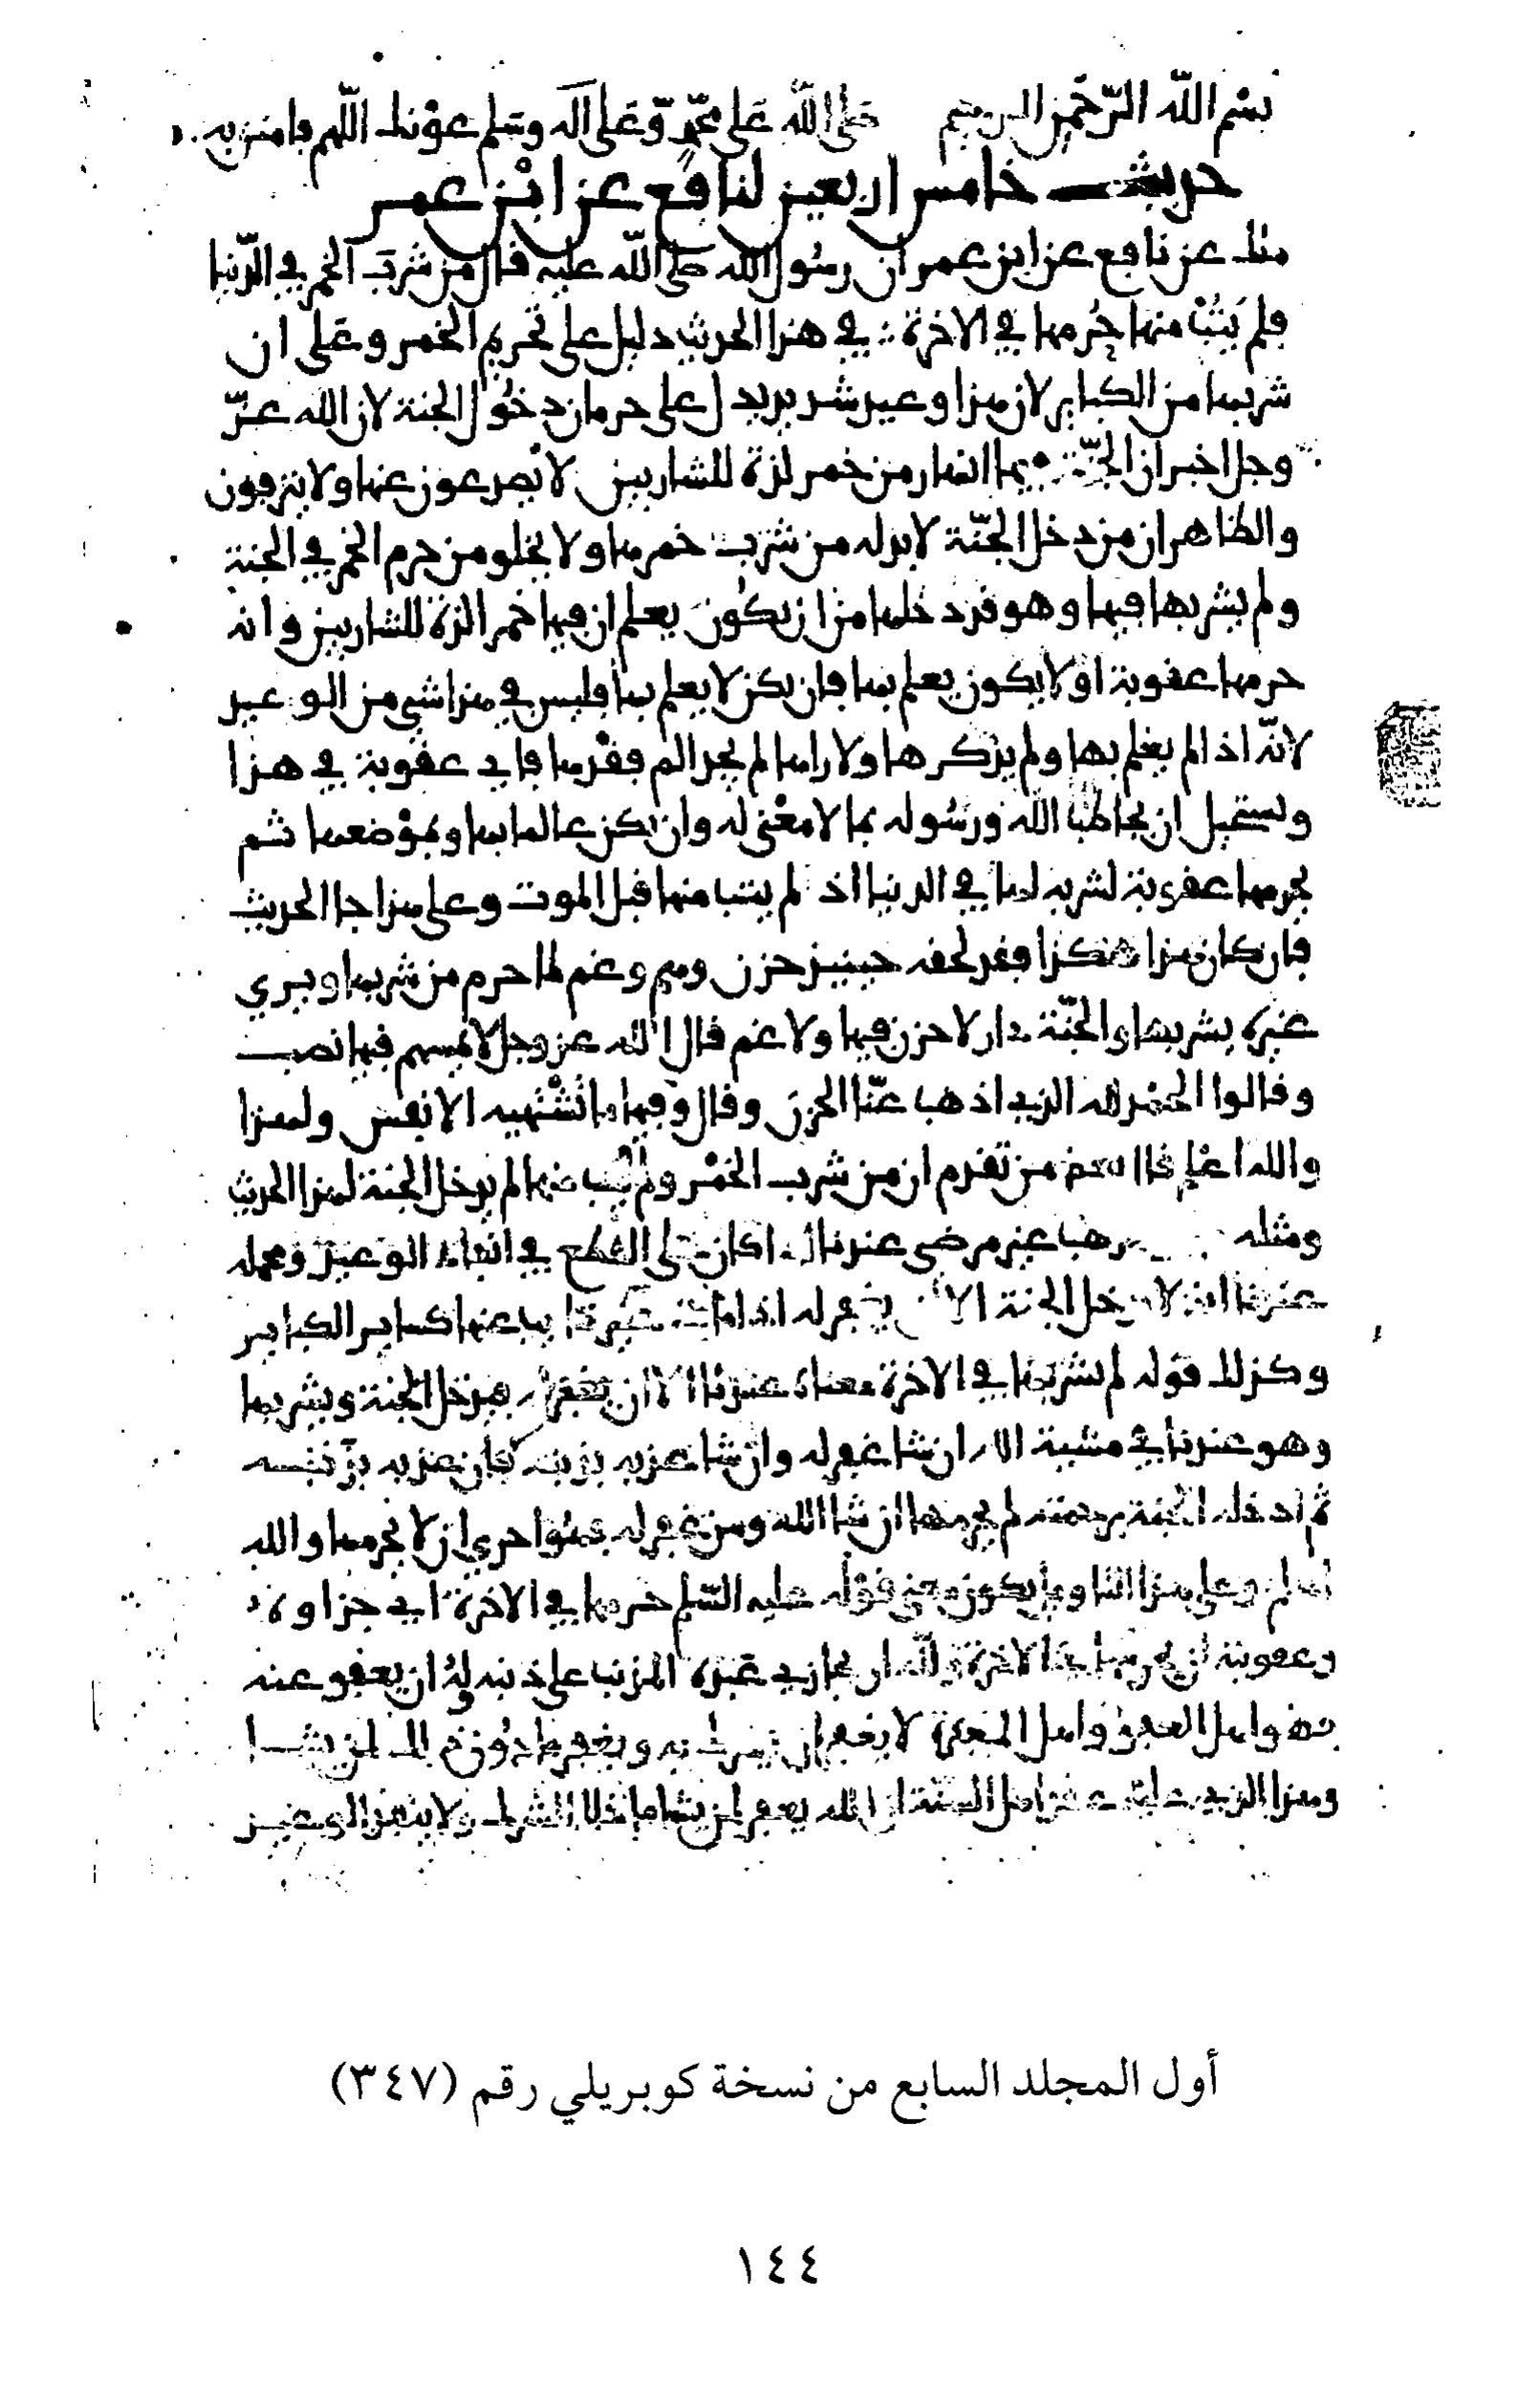 بسم الله الرحمن الرحيم صلى الله على محمد وعلى آله وسلم عونك اللهم
حديث خامس اربعين لنافع عن ابن عمر
ملك عن نافع عن ابن عمر ان رسول الله صلى الله عليه قال من شرب الخمر في الدنيا
فلم يتب منها حرمها في الاخرة في هذا الحديث دليل على تحريم الخمر وعلى ان
شربها من الكباير لان هذا وعيد شديد يدل على حرمان دخول الجنة لان الله عز
وجل اخبر ان الجنة فيها انهار من خمر لذة للشاربين لا يصدعون عنها ولا ينزفون
والظاهر ان من دخل الجنة لا بد له من شرب خمرها ولا يخلو من حرم الخمر في الجنة
ولم يشربها فيها وهو قد دخلها من ان يكون يعلم ان فيها خمرا لذة للشاربين وانه
حرمها عقوبة او لا يكون يعلم بها فان يكن لا يعلم بها فليس في هذا شي من الوعيد
لانه اذا لم يعلم بها ولم يذكرها ولا راها لم يجد الم فقدها فاي عقوبة في هذا
ويستحيل ان يخاطب الله ورسوله بما لا معنى له وان يكن عالما بها وبموضعها ثم
يحرمها عقوبة لشربه لها في الدنيا اذ لم يتب منها قبل الموت وعلى هذا جا الحديث
فان كان هذا هكذا فقد لحقه حينيذ حزن وهم وغم لما حرم من شربها ويري
غيره يشربها والجنة دار لا حزن فيها ولا غم قال الله عز وجل لا يمسهم فيها نصب
وقالوا الحمد لله الذي اذهب عنا الحزن وقال وفيها ما تشتهيه الانفس ولهذا
والله اعلم قال بعض من تقدم ان من شرب الخمر ولم يتب منها لم يدخل الجنة لهذا الحديث
ومثله غير مرضي عندنا اذا كان على القطع في انفاذ الوعيد ومحمله
عندنا انه لا يدخل الجنة الا ان يغفر له اذا مات غير تايب عنها كساير الكباير
وكذلك قوله لم يشربها في الاخرة معناه عندنا الا ان يغفر له فيدخل الجنة ويشربها
وهو عندنا في مشية الله ان شا غفر له وان شا عذبه بذنبه فان عذبه بذنبه
ثم ادخله الجنة برحمته لم يحرمها ان شا الله ومن غفر له فهو احرى ان لا يحرمها والله
اعلم وعلى هذا التاويل يكون معنى قوله عليه السلم حرمها في الاخرة اي جزاوه
وعقوبته ان يحرمها في الاخرة ولله ان يجازي عبده المذنب على ذنبه وله ان يعفو عنه
فهو اهل العفو واهل المغفرة لا يغفر ان يشرك به ويغفر ما دون ذلك لمن يشا
وهذا الذي عليه عقد اهل السنة ان الله يغفر لمن يشا ما خلا الشرك ولا ينفذ الوعيد
أول المجلد السابع من نسخة كوبريلي رقم (٣٤٧)
١٤٤